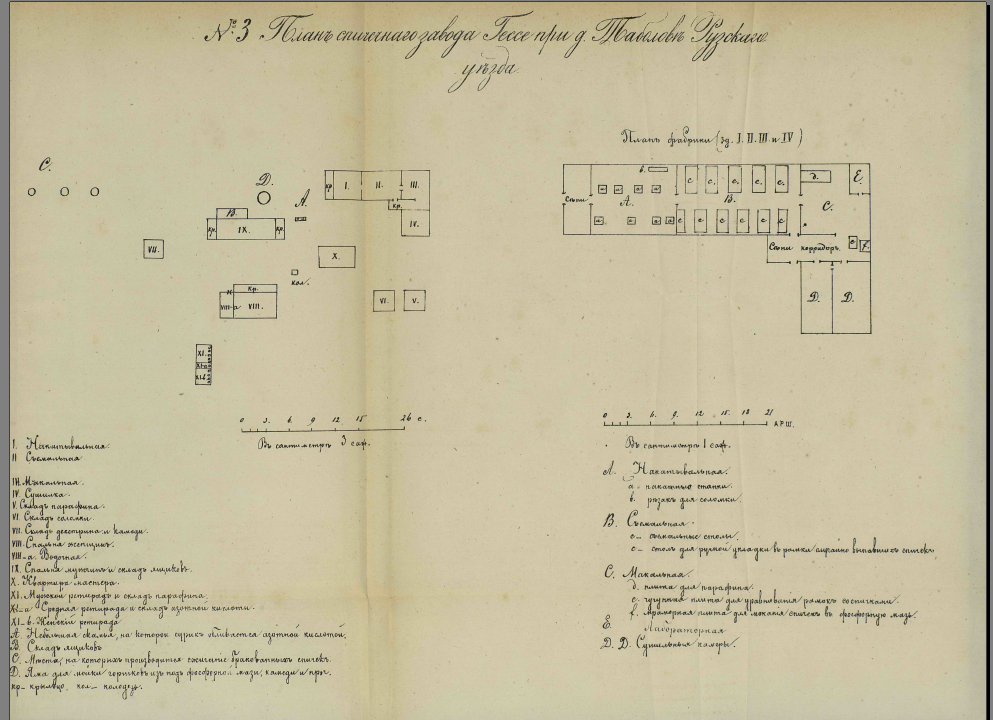 № 3 Планъ спичечнаго завода Гессе при д. Таболовѣ Рузскаго
уѣзда.
Планъ фабрики (зд. I. II. III и IV)
C.
D.
A.
B.
кр.
I.
II.
III.
кр.
IV.
кр.
IX.
кр.
VII.
X.
кол.
кр.
VIII-a
VIII.
VI.
V.
XI.
XI-a
XI-b
Сѣни
A.
b.
a a a a
a a a a
B.
c. c. c. c. c.
c c c c c
d.
E.
C.
Сѣни корридоръ.
e
f.
D.
D.
0 3. 6. 9 12 15 26 с.
Въ сантиметрѣ 3 саж.
0 3. 6. 9. 12. 15. 18. 21 АРШ.
Въ сантиметрѣ 1 саж.
I. Накатывальная.
II Съемальная
III. Макальная.
IV. Сушилка.
V. Складъ парафина.
VI. Складъ соломки.
VII. Складъ декстрина и камеди.
VIII. Спальня женщинъ.
VIII-a. Водочная.
IX. Спальня мужчинъ и складъ ящиковъ.
X. Квартира мастера.
XI. Мужской ретирадъ и складъ парафина.
XI-a Средняя ретирада и складъ азотной кислоты.
XI-b. Женскій ретирадъ
A. Небольшая скамья, на которой сурикъ обливается азотной кислотой.
B. Складъ ящиковъ
C. Мѣста, на которыхъ производится сжиганіе бракованныхъ спичекъ.
D. Яма для мойки горшковъ изъ подъ фосфорной мази, камеди и проч.
кр – крыльцо, кол – колодезь.
A. Накатывальная.
a – накатные станки.
b. рѣзакъ для соломки.
B. Съемальная.
c – съемальные столы.
c – столъ для ручной укладки въ рамки случайно выпавшихъ спичекъ
C. Макальная.
d. плита для парафина.
e. чугунная плита для уравниванія рамокъ со спичками.
f. мраморная плита для маканія спичекъ въ фосфорную мазь.
E. Лабораторная
D. D. Сушильныя камеры.